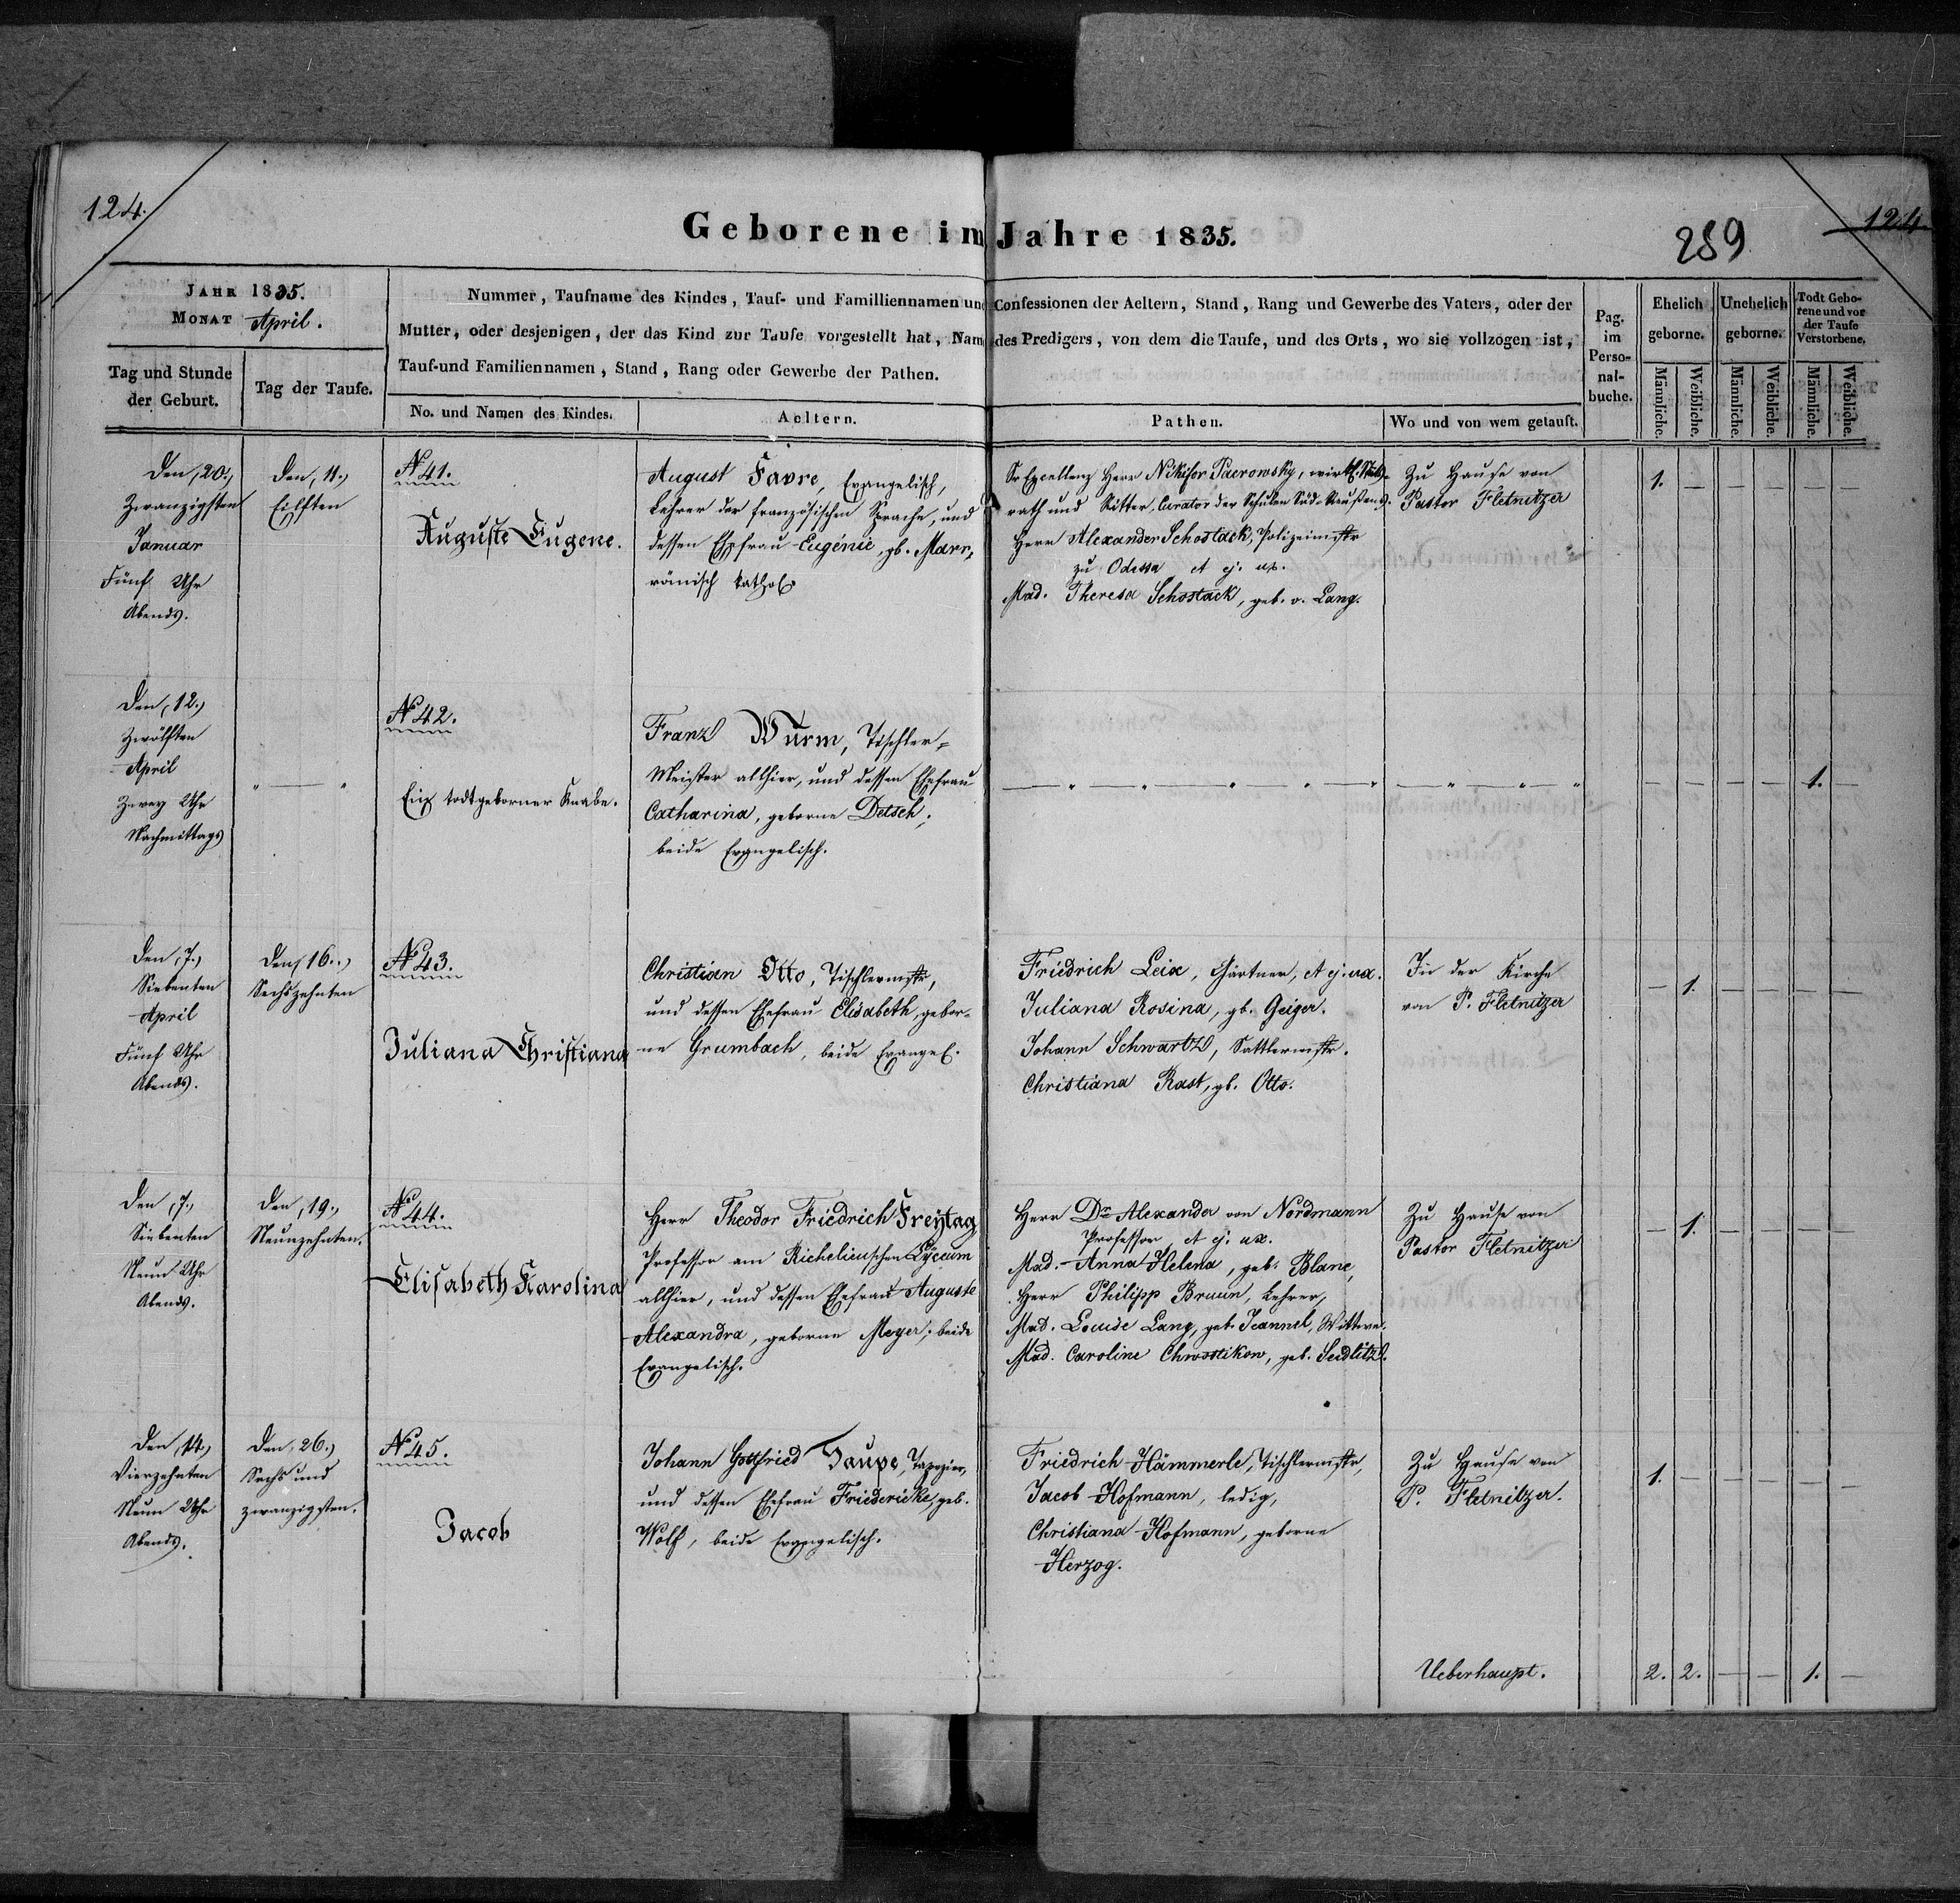 124.
Geborene im Jahre 1835.
289
124.
JAHR 1835.
MONAT April.
Tag und Stunde
der Geburt.
Tag der Taufe.
Nummer, Taufname des Kindes, Tauf- und Familliennamen und Confessionen der Aeltern, Stand, Rang und Gewerbe des Vaters, oder der
Mutter, oder desjenigen, der das Kind zur Taufe vorgestellt hat, Nam des Predigers, von dem die Taufe, und des Orts, wo sie vollzogen ist,
Tauf-und Familiennamen, Stand, Rang oder Gewerbe der Pathen.
No. und Namen des Kindes.
Aeltern.
Pathen.
Wo und von wem getauft.
Pag.
im
Perso-
nal-
buche.
Ehelich
geborne.
Unehelich
geborne.
Todt Gebo-
rene und vor
der Taufe
Verstorbene.
Männliche.
Weibliche.
Männliche.
Weibliche.
Männliche.
Weibliche.
Den, 20.,
Zwanzigsten
Januar
Fünf Uhr
Abends.
Den, 11.,
Eilften
No 41.
Auguste Eugene.
August Favre, Evangelisch,
Lehrer der französischen Sprache, und
dessen Ehefrau Eugénie, gb. Marr,
römisch kathol.
Sr Excellenz Herr Nikifor Paerowsky, wirkl. Stats-
rath und Ritter, Curator der Schulen Süd-Reußens.
Herr Alexander Schostack, Polizeimstr
zu Odessa et ej. ux.
Mad. Theresa Schostack, geb. v. Lang.
Zu Hause von
Pastor Fletnitzer
1. — — — — —
Den, 12.,
Zwölften
April
Zwey Uhr
Nachmittags
" — "
No 42.
Ein todtgeborner Knabe.
Franz Wurm, Tischler-
Meister allhier, und dessen Ehefrau
Catharina, geborne Detsch,
beide Evangelisch.
— " — " — " — " — "
— " — " — "
— — — — 1. —
Den, 7.,
Siebenten
April
Fünf Uhr
Abends.
Den, 16.,
Sechszehnten
No 43.
Juliana Christiana
Christian Otto, Tischlermstr,
und dessen Ehefrau Elisabeth, gebor-
ne Grumbach, beide Evangel.
Friedrich Leix, Gärtner, et ej. ux.
Juliana Rosina, gb. Geiger.
Johann Schwartz, Sattlermstr.
Christiana Rast, gb. Otto.
In der Kirche
von P. Fletnitzer
— 1. — — — —
Den, 7.,
Siebenten
Neun Uhr
Abends.
Den, 19.,
Neunzehnten.
No 44.
Elisabeth Karolina
Herr Theodor Friedrich Freytag
Professor am Richelieuschen Lyceum
allhier, und dessen Ehefrau Auguste
Alexandra, geborne Meyer; beide
Evangelisch.
Herr Dr Alexander von Nordmann
Professor, et ej. ux.
Mad. Anna Helena, geb. Blanc,
Herr Philipp Bruun, Lehrer,
Mad. Louise Lang, geb. Jeannel, Wittwe.
Mad. Caroline Chwostikow, geb. Seidlitz.
Zu Hause von
Pastor Fletnitzer
— 1. — — — —
Den, 14.,
Vierzehnten
Neun Uhr
Abends.
Den, 26.,
Sechs und
zwanzigsten.
No 45.
Jacob
Johann Gottfried Taupe, Tapezier,
und dessen Ehefrau Friedericke, geb.
Wolf, beide Evangelisch.
Friedrich Hämmerle, Tischlermstr,
Jacob Hofmann, ledig,
Christiana Hofmann, geborne
Herzog.
Zu Hause von
P. Fletnitzer.
1. — — — — —
Ueberhaupt.
2. 2. — — 1. —